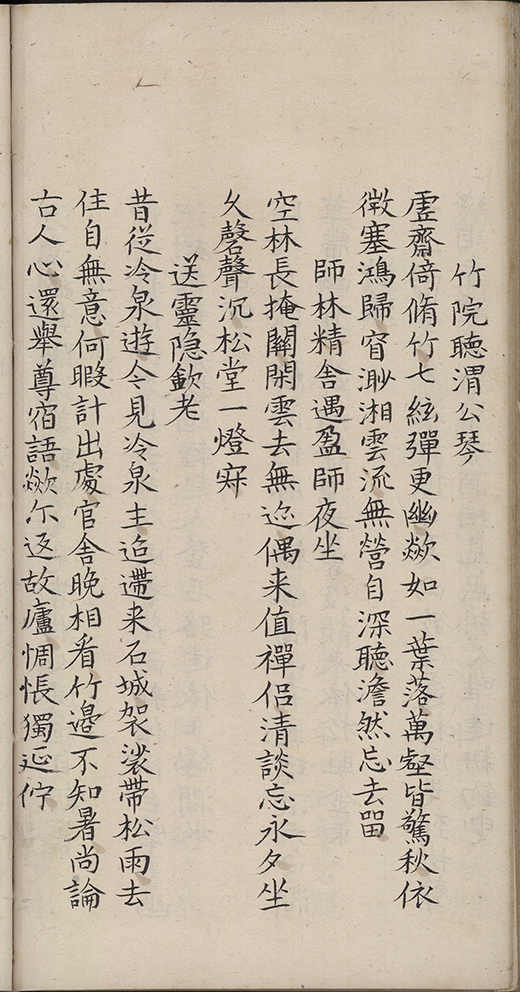 竹院聽渭公琴
虛齋倚脩竹七絃彈更幽欻如一葉落萬壑皆驚秋依
微塞鴻歸窅渺湘雲流無營自深聽澹然忘去畱
師林精舍遇盈師夜坐
空林長掩關閑雲去無迹偶来值禪侣清談忘永夕坐
久磬聲沉松堂一燈寂
送靈隐歛老
昔從冷泉遊今見冷泉主迨遰来石城袈裟帶松雨去
住自無意何暇計出處官舍晚相看竹邊不知暑尚論
古人心還舉尊宿語欻尓返故廬惆悵獨延佇